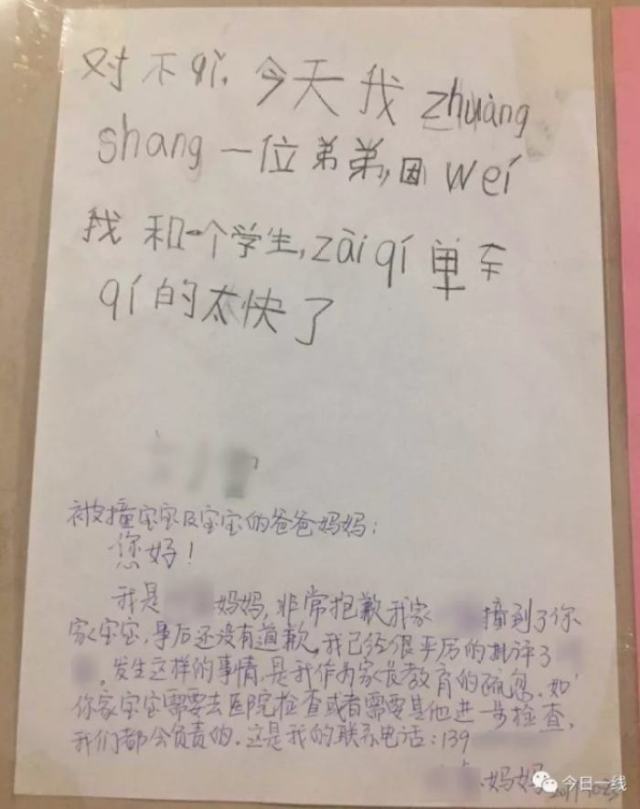 对不qǐ，今天我zhuàng
shang一位弟弟，因wéi
我和一个学生，zài qí单车
qí的太快了
被撞宝宝及宝宝的爸爸妈妈：
您好！
我是 妈妈，非常抱歉我家 撞到了你
家宝宝，事后还没有道歉。我已经很严厉的批评了
。发生这样的事情，是我作为家长教育的疏忽。如
你家宝宝需要去医院检查或者需要其他进一步检查，
我们都会负责的。这是我的联系电话：139
妈妈
今日一线